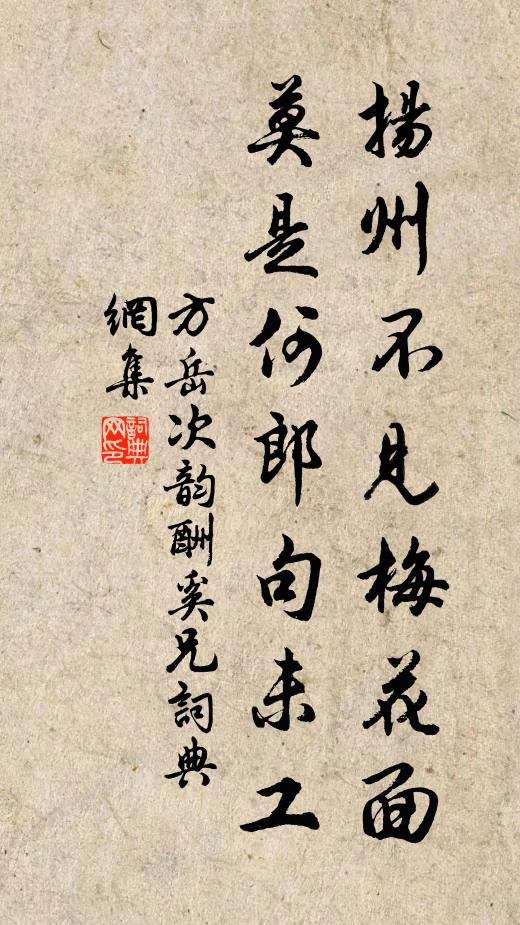 揚州不見梅花面
莫是何郎句未工
方岳次韵酬奚兄詞典
網集
詞典
网印